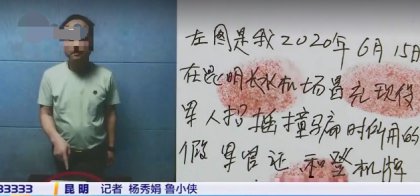 左图是我2020年6月15日
在昆明长水机场冒充现役
军人招摇撞骗时所用的
假军官证和登机牌
33333 昆明 记者 杨秀娟 鲁小侠